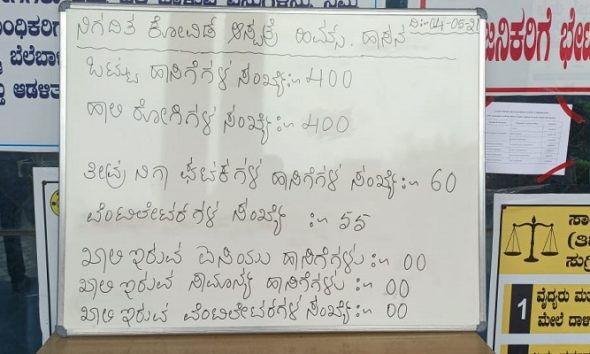 ನಿಗದಿತ ಕೋವಿಡ್ ಆಸ್ಪತ್ರೆ ಹಿಮ್ಸ್, ಹಾಸನ ದಿ:-04-05-21
ಒಟ್ಟು ಹಾಸಿಗೆಗಳ ಸಂಖ್ಯೆ:- 400
ಹಾಲಿ ರೋಗಿಗಳ ಸಂಖ್ಯೆ:- 400
ತೀವ್ರ ನಿಗಾ ಘಟಕಗಳ ಹಾಸಿಗೆಗಳ ಸಂಖ್ಯೆ:- 60
ವೆಂಟಿಲೇಟರಗಳ ಸಂಖ್ಯೆ :- 55
ಖಾಲಿ ಇರುವ ಐಸಿಯು ಹಾಸಿಗೆಗಳು:- 00
ಖಾಲಿ ಇರುವ ಸಾಮಾನ್ಯ ಹಾಸಿಗೆಗಳು:- 00
ಖಾಲಿ ಇರುವ ವೆಂಟಿಲೇಟರಗಳ ಸಂಖ್ಯೆ:- 00
ಜನಿಕರಿಗೆ ಭೇಟ
ಂಧಿಕರಿಗ
ಬೆಲೆಬಾ
ಆಡಳಿತ
ಸಾ
(ತಿ
ಸುಗ್ರ
1 ವೈದ್ಯರು ಮತ
ಮೇಲೆ ದಾಳಿ